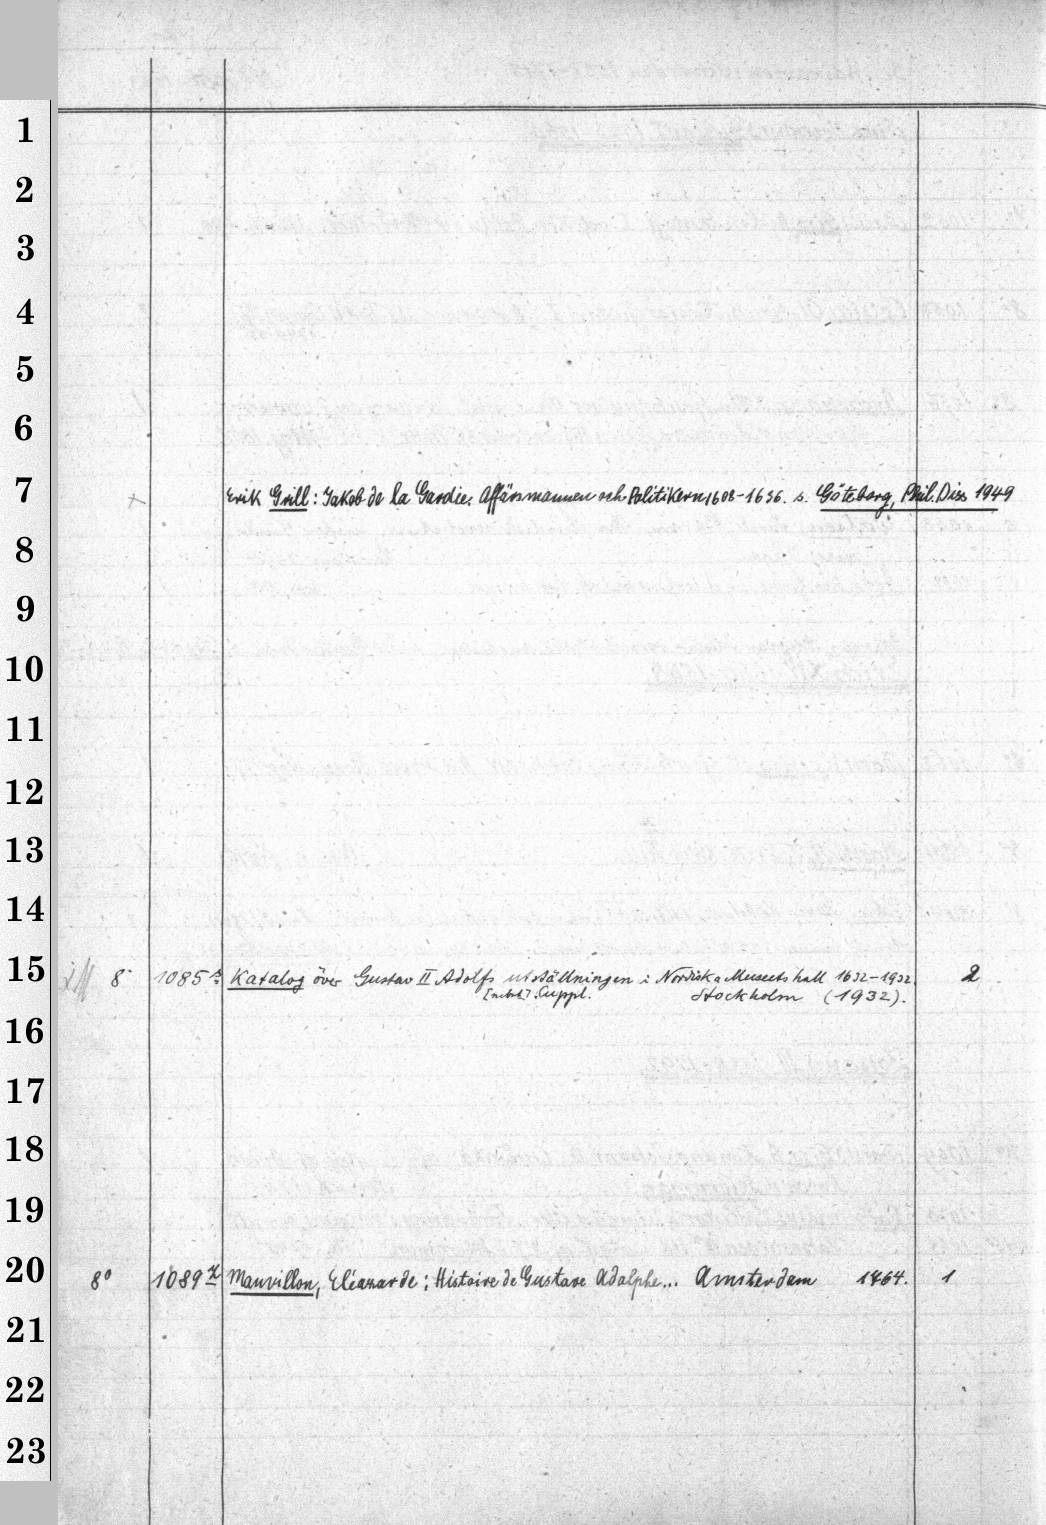 1
2
3
4
5
6
7 Erik Grill: Jakob de la Gardie. Affärsmannen och Politikern 1608-1636. s. Göteborg, Phil. Diss 1949
8
9
10
11
12
13
14
15 8° 1085 Katalog över Gustav II Adolfs utställningen i Nordiska Museets hall 1632-1932. 2
Suppl. Stockholm (1932).
16
17
18
19
20 8° 1089 Mauvillon, Eléazar de: Histoire de Gustave Adolphe... Amsterdam 1764. 1
21
22
23